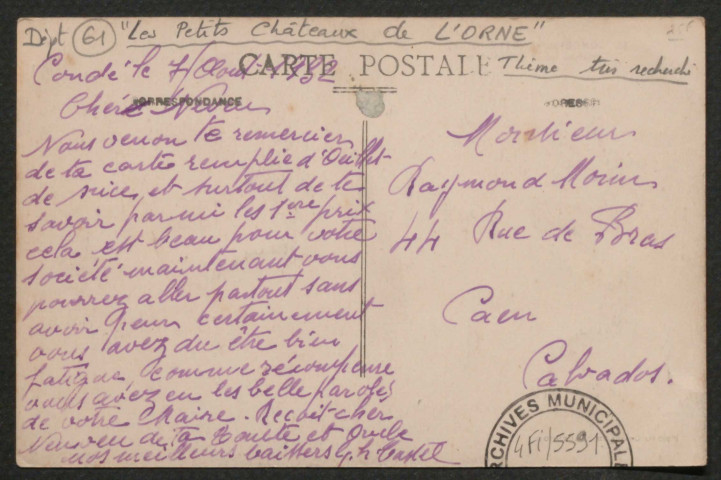 Dépt (61) "Les Petits Châteaux de L'ORNE"
Thème très recherché
CARTE POSTALE
Condé le 7 Aout 1932
CORRESPONDANCE
Cher Neveu
Nous venon te remercier
de ta carte remplie d'
de nice, et surtout de te
savoir parmi les 1ere prix
cela est beau pour votre
société maintenant vous
pourrez aller partout sans
avoir peur certainement
vous avez du être bien
fatigué comme récompense
vous avez eu les belle paroles
de votre Maire. Reçoit cher
Neuveu de ta Tante et Oncle
nos meilleurs baisers
Monsieur
Raymond Morin
44 Rue de Bras
Caen
Calvados.
ARCHIVES MUNICIPALES
4Fi/5591